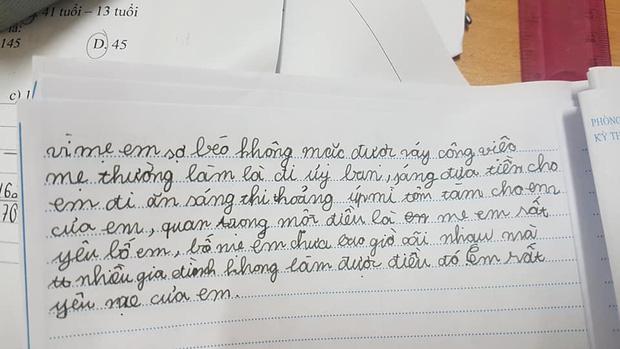 41 tuổi – 13 tuổi
là:
145
D. 45
c) 1
160
70
PHÒNG
KỲ TH
vì mẹ em sợ béo không mặc được váy công việc
mẹ thường làm là đi ủy ban, sáng đưa tiền cho
em đi ăn sáng thi thoảng úp mì tôm tăm cho em
của em, quan tương mỗi điều là mẹ em rất
yêu bố em, bố mẹ em chưa bao giờ cãi nhau mà
nhiều gia đình không làm được điều đó Em rất
yêu mẹ của em.